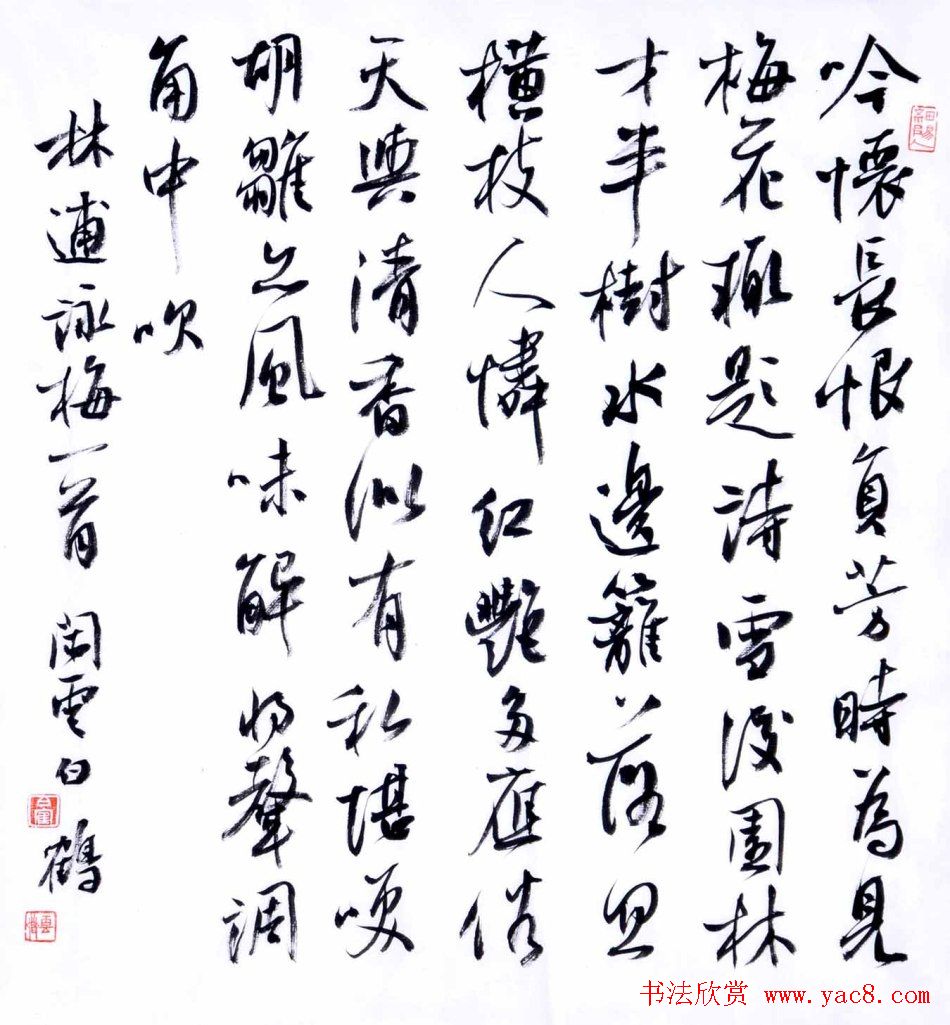 吟懷長恨負芳時為見
梅花輒題詩雪後園林
才半樹水邊籬落忽
橫枝人憐紅艷多應俗
天與清香似有私堪咲
胡雛亦風味解將聲調
角中吹
林逋詠梅一首 閑雲白鶴
书法欣赏 www.yac8.com